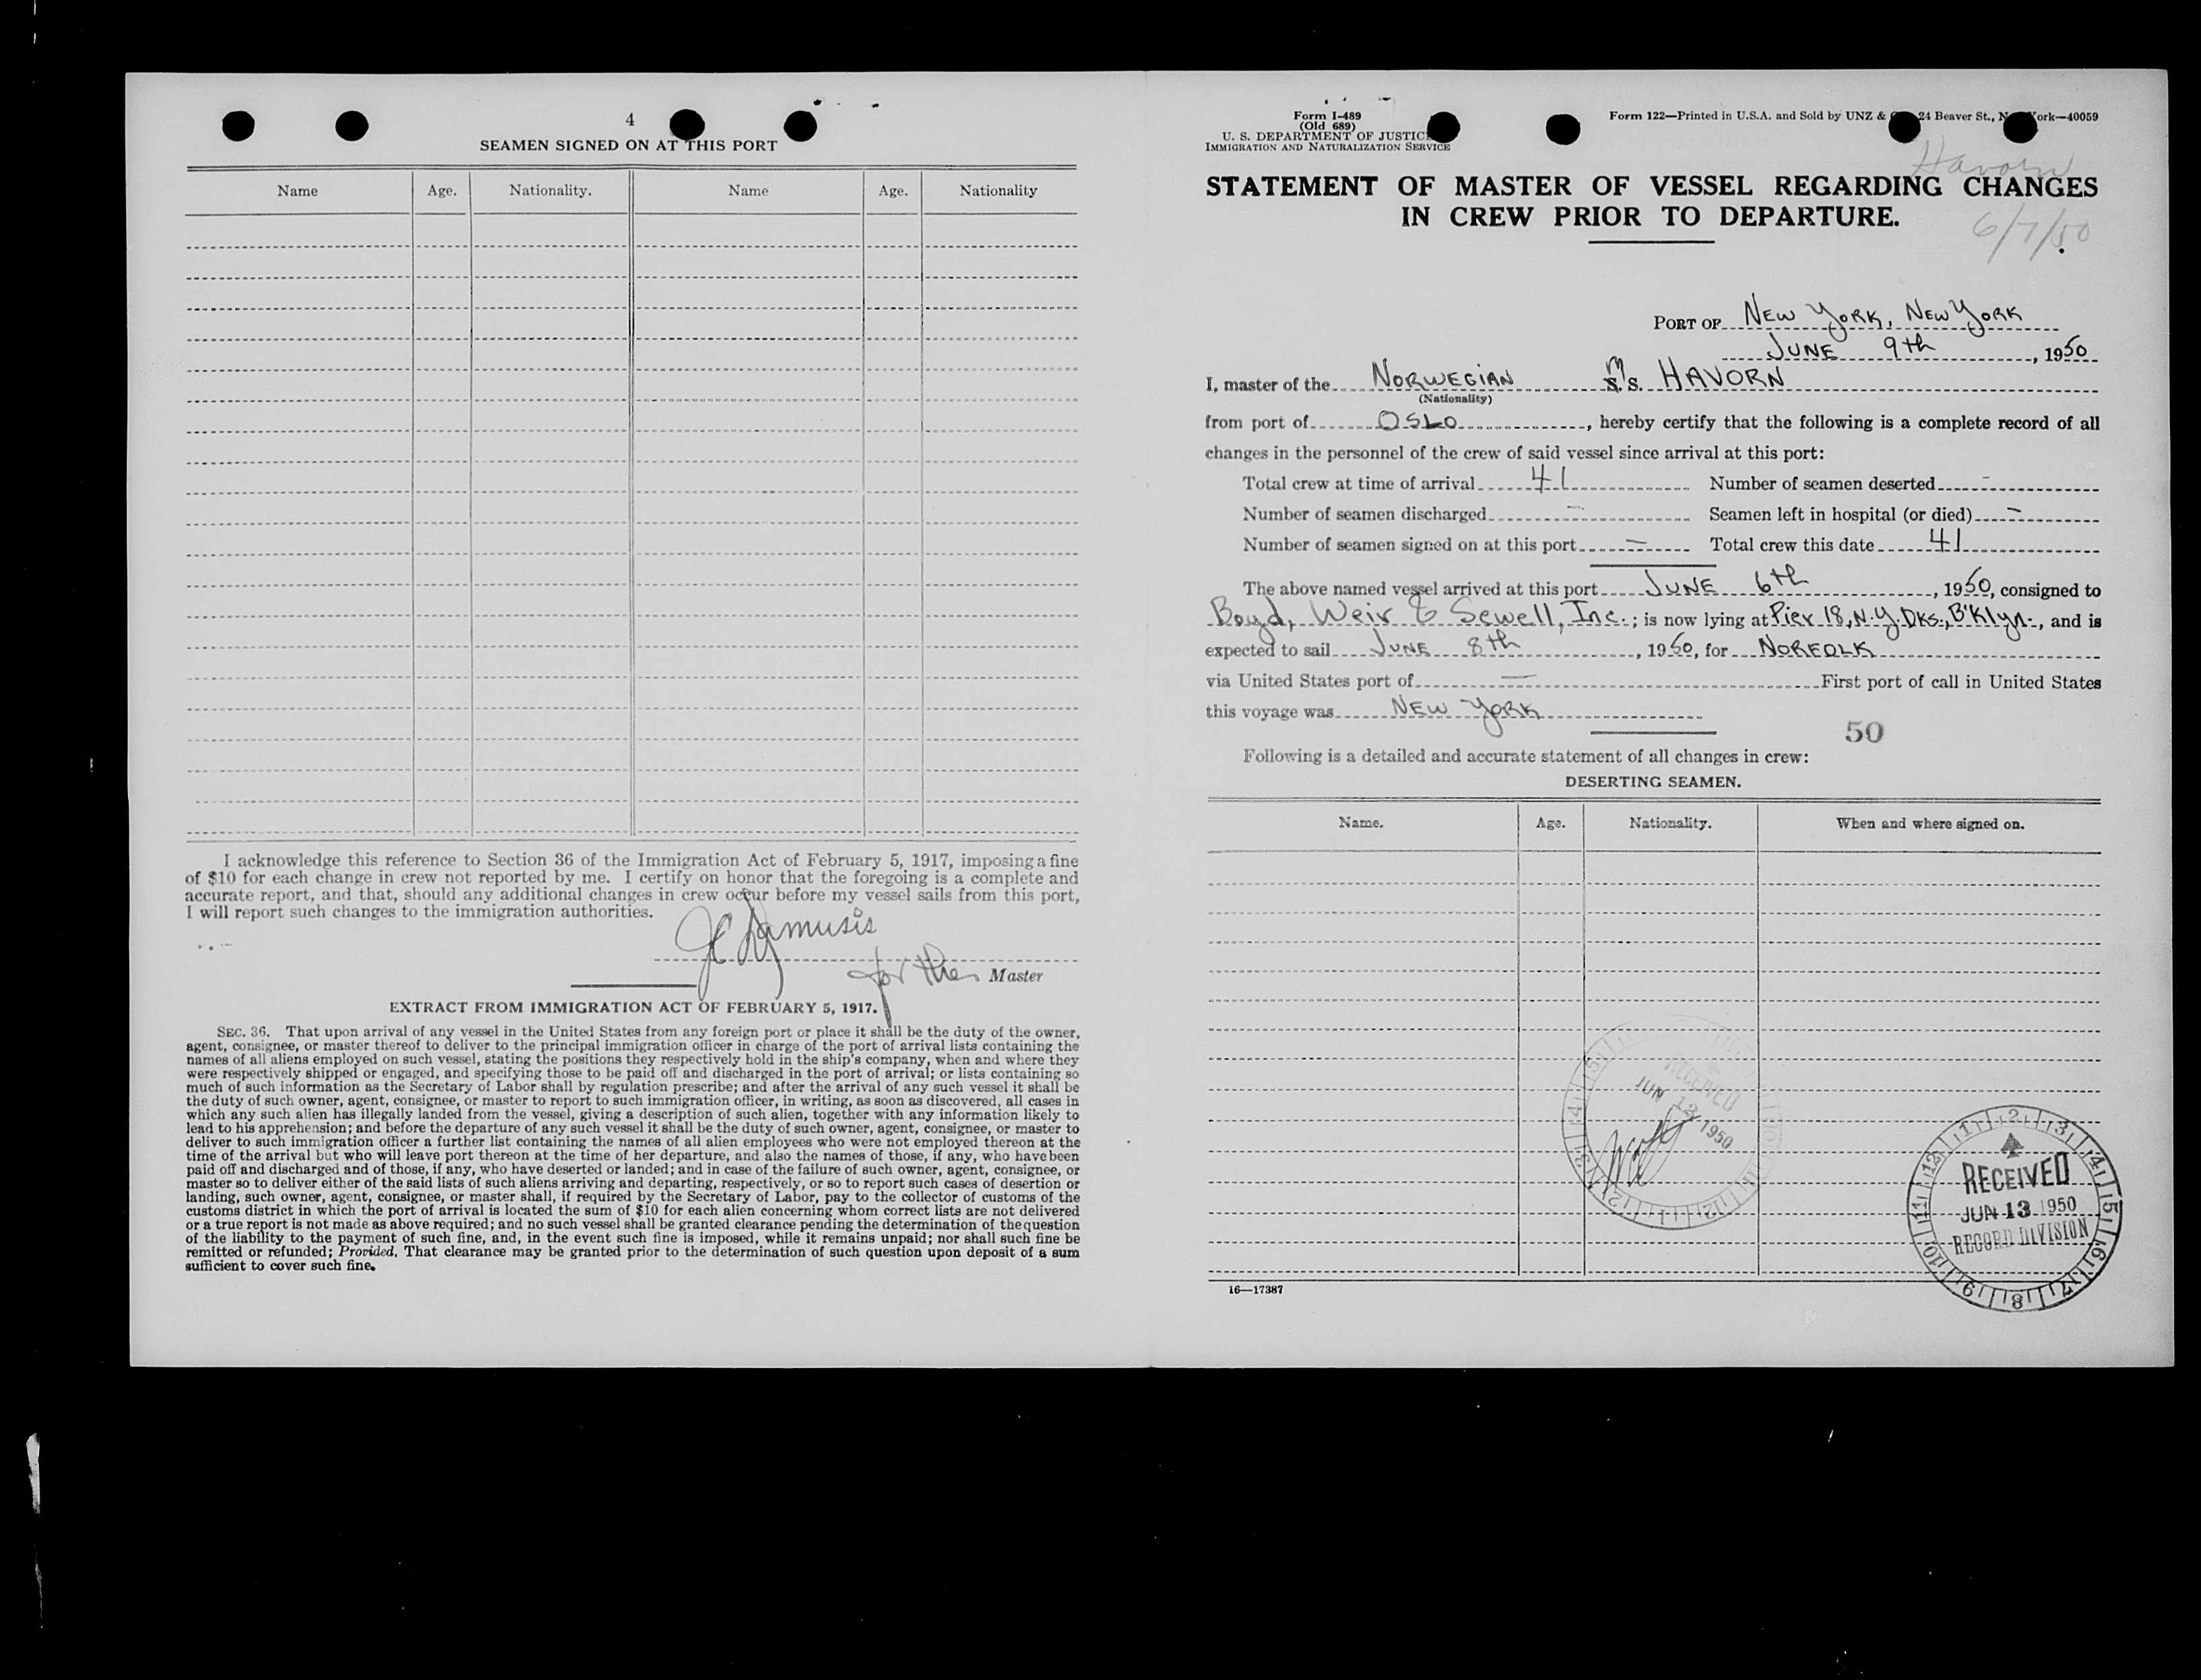 4
SEAMEN SIGNED ON AT THIS PORT
Name Age. Nationality. Name Age. Nationality
I acknowledge this reference to Section 36 of the Immigration Act of February 5, 1917, imposing a fine
of $10 for each change in crew not reported by me. I certify on honor that the foregoing is a complete and
accurate report, and that, should any additional changes in crew occur before my vessel sails from this port,
I will report such changes to the immigration authorities.
for the Master
EXTRACT FROM IMMIGRATION ACT OF FEBRUARY 5, 1917.
SEC. 36. That upon arrival of any vessel in the United States from any foreign port or place it shall be the duty of the owner,
agent, consignee, or master thereof to deliver to the principal immigration officer in charge of the port of arrival lists containing the
names of all aliens employed on such vessel, stating the positions they respectively hold in the ship's company, when and where they
were respectively shipped or engaged, and specifying those to be paid off and discharged in the port of arrival; or lists containing so
much of such information as the Secretary of Labor shall by regulation prescribe; and after the arrival of any such vessel it shall be
the duty of such owner, agent, consignee, or master to report to such immigration officer, in writing, as soon as discovered, all cases in
which any such alien has illegally landed from the vessel, giving a description of such alien, together with any information likely to
lead to his apprehension; and before the departure of any such vessel it shall be the duty of such owner, agent, consignee, or master to
deliver to such immigration officer a further list containing the names of all alien employees who were not employed thereon at the
time of the arrival but who will leave port thereon at the time of her departure, and also the names of those, if any, who have been
paid off and discharged and of those, if any, who have deserted or landed; and in case of the failure of such owner, agent, consignee, or
master so to deliver either of the said lists of such aliens arriving and departing, respectively, or so to report such cases of desertion or
landing, such owner, agent, consignee, or master shall, if required by the Secretary of Labor, pay to the collector of customs of the
customs district in which the port of arrival is located the sum of $10 for each alien concerning whom correct lists are not delivered
or a true report is not made as above required; and no such vessel shall be granted clearance pending the determination of the question
of the liability to the payment of such fine, and, in the event such fine is imposed, while it remains unpaid; nor shall such fine be
remitted or refunded; Provided, That clearance may be granted prior to the determination of such question upon deposit of a sum
sufficient to cover such fine.
Form I-489
(Old 689)
U. S. DEPARTMENT OF JUSTICE
IMMIGRATION AND NATURALIZATION SERVICE
Form 122—Printed in U.S.A. and Sold by UNZ & 24 Beaver St., York—40059
Havorn
STATEMENT OF MASTER OF VESSEL REGARDING CHANGES
IN CREW PRIOR TO DEPARTURE.
6/7/50
PORT OF NEW YORK, NEW YORK
JUNE 9th, 1950
I, master of the NORWEGIAN M.S. HAVORN
(Nationality)
from port of OSLO, hereby certify that the following is a complete record of all
changes in the personnel of the crew of said vessel since arrival at this port:
Total crew at time of arrival 41 Number of seamen deserted -
Number of seamen discharged - Seamen left in hospital (or died) -
Number of seamen signed on at this port - Total crew this date 41
The above named vessel arrived at this port JUNE 6th, 1950, consigned to
Boyd, Weir & Sewell, Inc.; is now lying at Pier 18, N.Y. Dks., B'klyn., and is
expected to sail JUNE 8th, 1950, for NORFOLK
via United States port of — First port of call in United States
this voyage was NEW YORK
50
Following is a detailed and accurate statement of all changes in crew:
DESERTING SEAMEN.
Name. Age. Nationality. When and where signed on.
RECEIVED
JUN 12 1950
RECEIVED
JUN 13 1950
RECORD DIVISION
16—17387